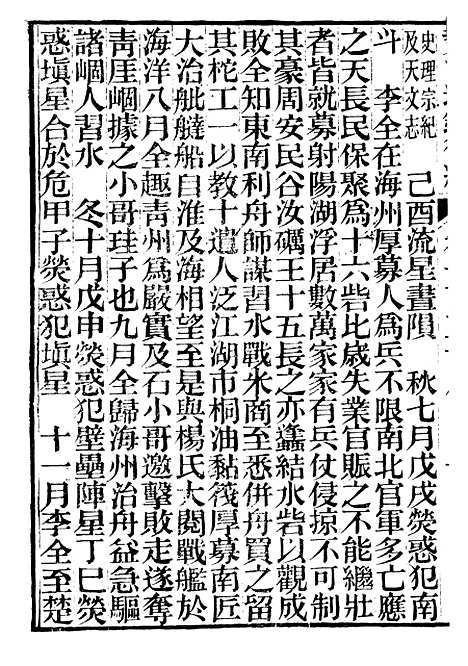 史理宗紀
及天文志　己酉流星晝隕　秋七月戊戌熒惑犯南
斗　李全在海州厚募人爲兵不限南北官軍多亡應
之天長民保聚爲十六砦比歲失業官賑之不能繼壯
者皆就募射陽湖浮居數萬家家有兵仗侵掠不可制
其豪周安民谷汝礪王十五長之亦蠭結水砦以觀成
敗全知東南利舟師謀習水戰米商至悉併舟買之留
其柁工一以教十遣人泛江湖市桐油黏筏厚募南匠
大治舭艤船自淮及海相望至是與楊氏大閱戰艦於
海洋八月全趣靑州爲嚴實及石小哥邀擊敗走遂奪
靑厓崓據之小哥珪子也九月全歸海州治舟益急驅
諸崓人習水　冬十月戊申熒惑犯壁壘陣星丁巳熒
惑塡星合於危甲子熒惑犯塡星　十一月李全至楚